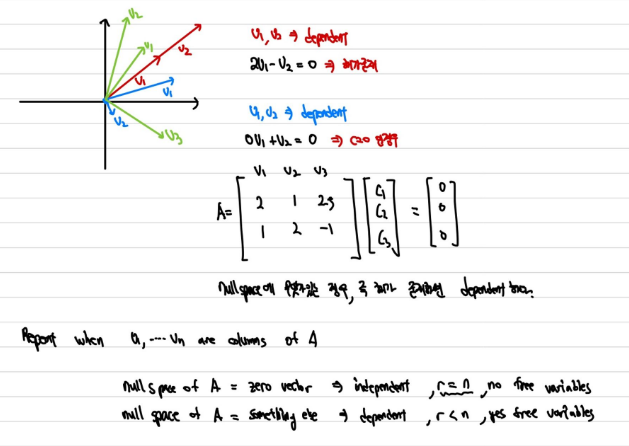 V₂
V₁
V₂
V₁
V₁
V₂
V₃
V₁, V₂ ⇒ dependent
2V₁ - V₂ = 0 ⇒
V₁, V₂ ⇒ dependent
0V₁ + V₂ = 0 ⇒
V₁ V₂ V₃
A = [ 2 1 2.5 ] [ C₁ ] = [ 0 ]
[ 1 2 -1 ] [ C₂ ] [ 0 ]
[ C₃ ] [ 0 ]
null space에 경우, 즉 해가 존재하면 dependent 하다.
Repeat when V₁, ···· Vn are columns of A
null space of A = zero vector ⇒ independent , r = n , no free variables
null space of A = something else ⇒ dependent , r < n , yes free variables